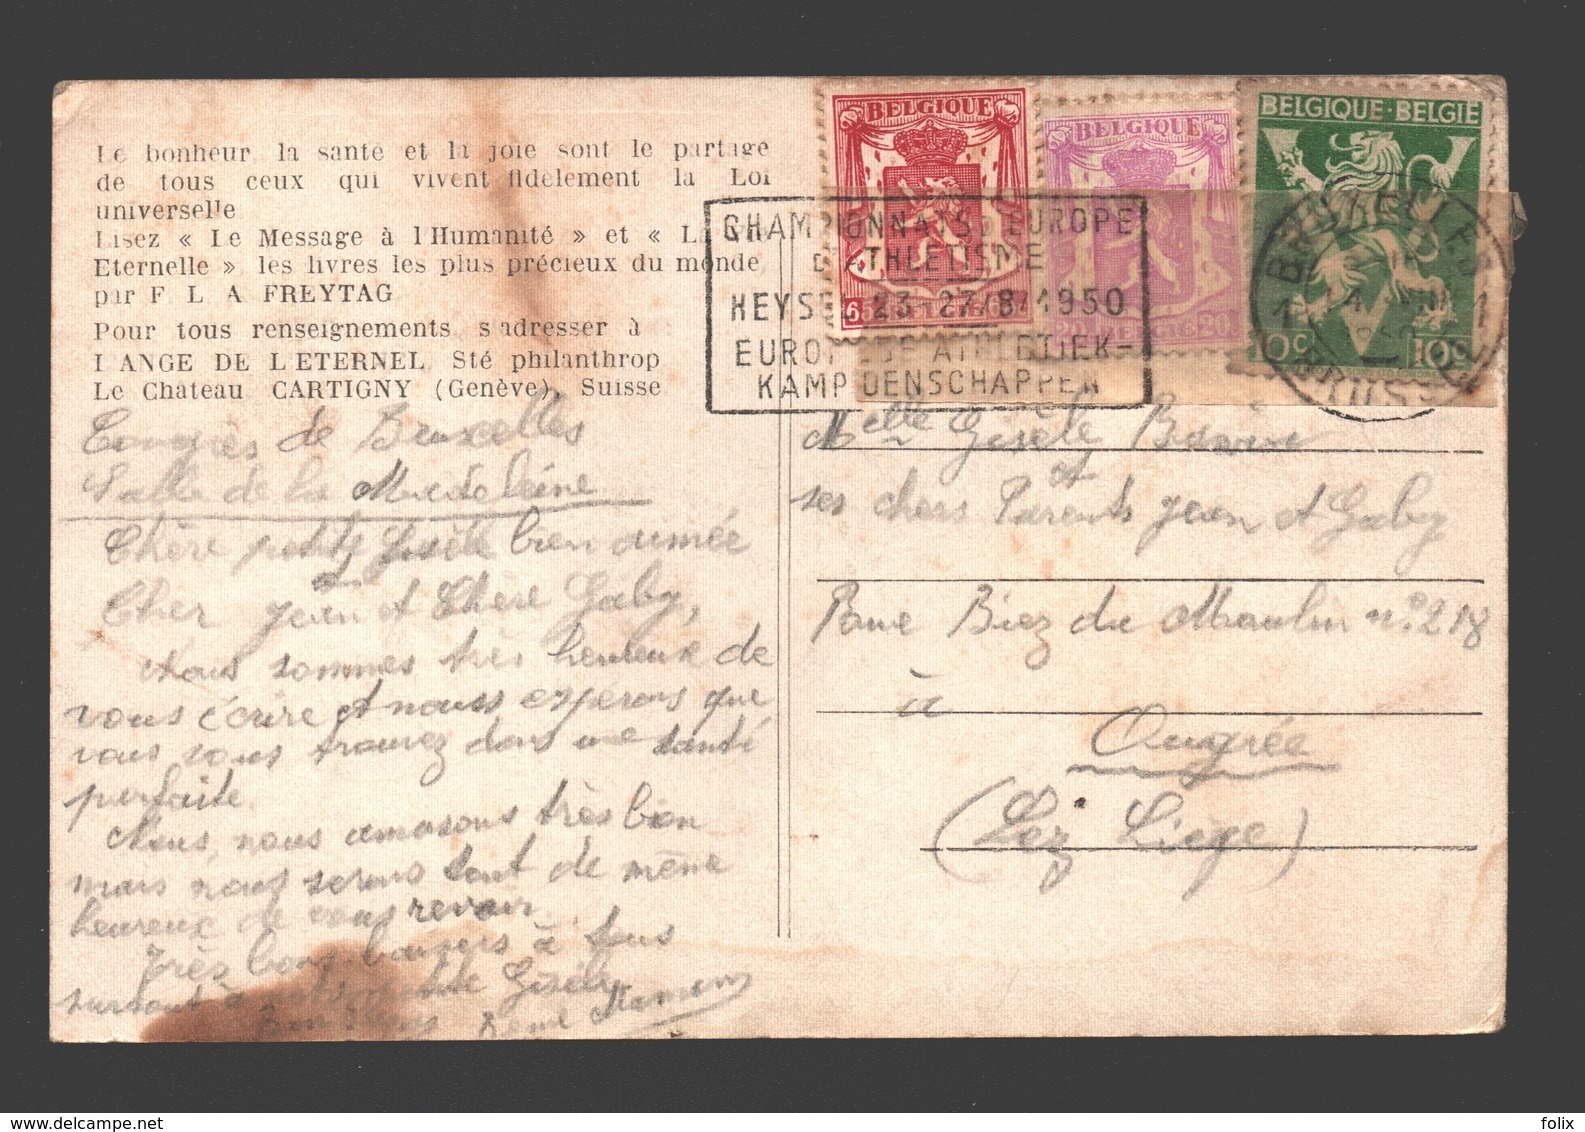 Le bonheur, la santé et la joie sont le partage
de tous ceux qui vivent fidèlement la Loi
universelle
Lisez « Le Message à l'Humanité » et « La Vie
Eternelle » les livres les plus précieux du monde,
par F. L. A. FREYTAG
Pour tous renseignements s'adresser à
L'ANGE DE L'ETERNEL Sté philanthrop
Le Chateau CARTIGNY (Genève), Suisse
Congrès de Bruxelles
Salle de la Madeleine
Chère petite Gisèle bien aimée
et
Cher Jean et Chère Gaby,
Nous sommes très heureux de
vous écrire et nous espérons que
vous vous trouvez dans une santé
parfaite.
Nous, nous amusons très bien
mais nous serons tout de même
heureux de vous revoir.
Très bons baisers à tous
surtout à petite Gisèle
Bon
BELGIQUE
65
BELGIQUE
20 BELGIE 20
BELGIQUE-BELGIE
10c 10c
CHAMPIONNATS D'EUROPE
D'ATHLETISME
HEYSEL 23-27/8/1950
EUROPESE ATHLETIEK-
KAMPIOENSCHAPPEN
1 BRUXELLES 1
BRUSSEL
Melle Gisèle
et
ses chers Parents Jean et Gaby
Rue Biez du Moulin n° 218
à
Ougrée
(Lez Liège)
folix